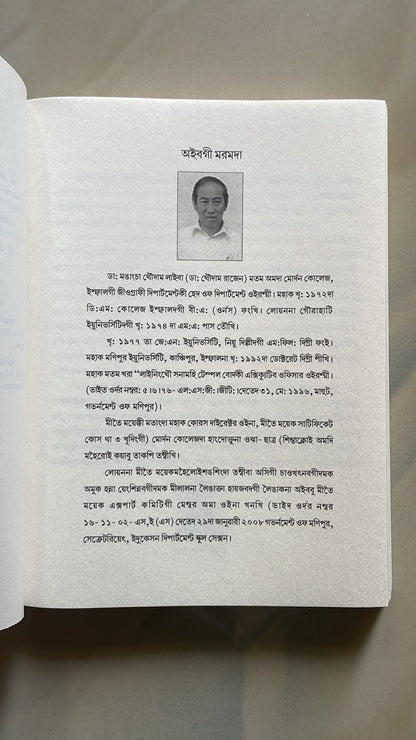 অইবগী মরমদা
ডা: মঙাংচা থৌদাম লাইবা (ডা: থৌদাম রাজেন) মতম অমদা মোর্দন কোলেজ,
ইম্ফালগী জীওগ্রাফী দিপার্টমেন্টকী হেদ ওফ দিপার্টমেন্ট ওইরম্মী। মহাক খৃ: ১৯৭২দা
ডি:এম: কোলেজ ইম্ফালদগী বী:এ: (ওর্নস) ফংখি। লোয়ননা গৌরাহাটি
ইয়ুনিভর্সিটিদগী খৃ: ১৯৭৪ দা এম:এ: পাস তৌখি।
খৃ: ১৯৭৭ তা জে:এন: ইয়ুনিভর্সিটি, নিয়ু দিল্লীদগী এম:ফিল: দিগ্রী ফংই।
মহাক মণিপুর ইয়ুনিভর্সিটি, কাঞ্চিপুর, ইম্ফালনা খৃ: ১৯৯২দা ডোক্টরেট দিগ্রী পীখি।
মহাক মতম খরা "লাইনিংথৌ সনামহি টেম্পল বোর্দকী এক্সিক্যুটিব ওফিসার ওইরম্মী।
(ভাইত ওর্দর নম্বর: ৫।৬।৭৬- এল:এস:জী:।জীটি:।দেতেদ ৩১, মে: ১৯৯৬, মায়ুট,
গভর্নমেন্ট ওফ মণিপুর)।
মীতৈ ময়েক্কী মতাংদা মহাক কোরস দাইরেক্টর ওইনা, মীতৈ ময়েক সাটিফিকেট
কোস থা ৩ খূদিংগী) মোর্দন কোলেজদা হাংদোক্তুনা ওঝা- ছাত্র (শিন্ফাক্লোই অমদি
মহৈরোই কয়াবু তাকপি তম্বীখি।
লোয়ননা মীতৈ ময়েকমহৈলোইশঙশিংদা তম্বীবা অসিগী চাওখৎনবগীদমক
অমুক হন্না য়েংশিন্নবগীদমক মীলালনা লৈঙাক্তা হায়জবদগী লৈঙাকনা অইববু মীতৈ
ময়েক এক্সপার্ট কমিটিগী মেম্বর অমা ওইনা খনখি (ভাইদ ওর্দর নম্বর
১৬- ১১- ০২- এস,ই (এস) দেতেদ ২৯দা জানুবারী ২০০৮ গভর্নমেন্ট ওফ মণিপুর,
সেক্রেটরিয়েৎ, ইদুকেসন দিপার্টমেন্ট স্কুল সেক্সন।